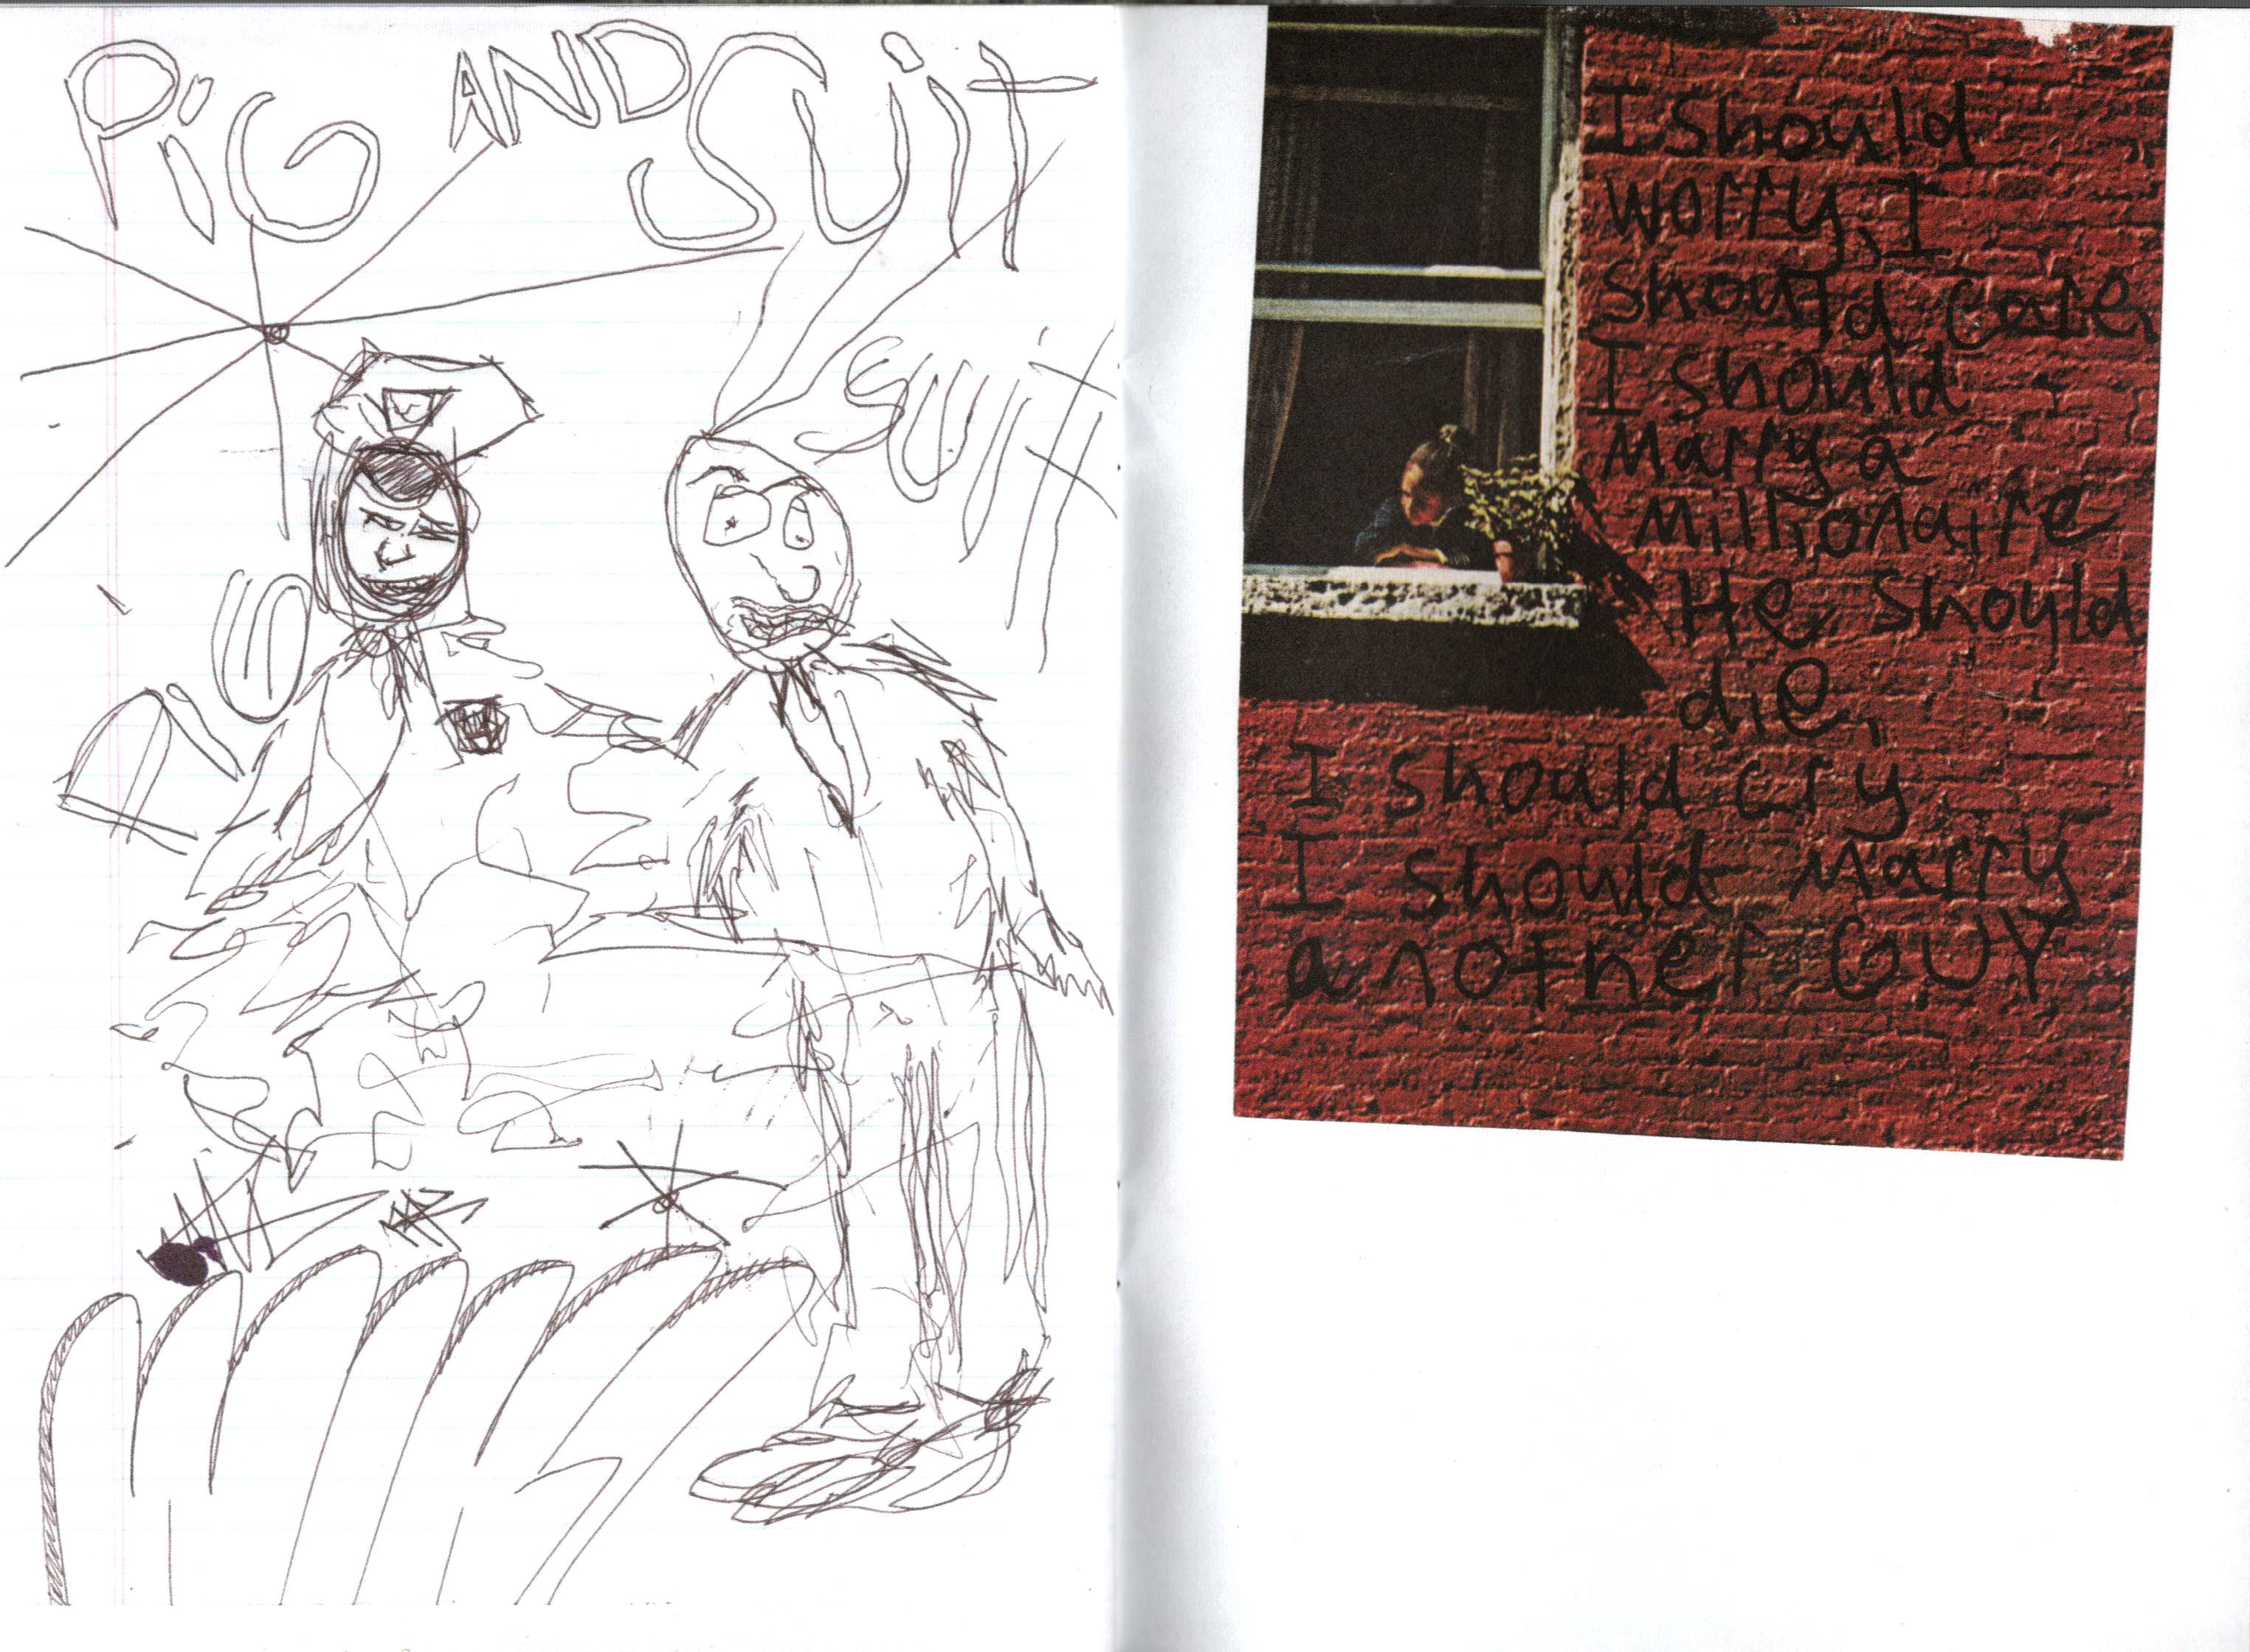 PiG AND SUiT
SUiT
PiG
I should
worry, I
should care,
I should
Marry a
Millionaire
He should
die,
I should cry
I should Marry
another GUY